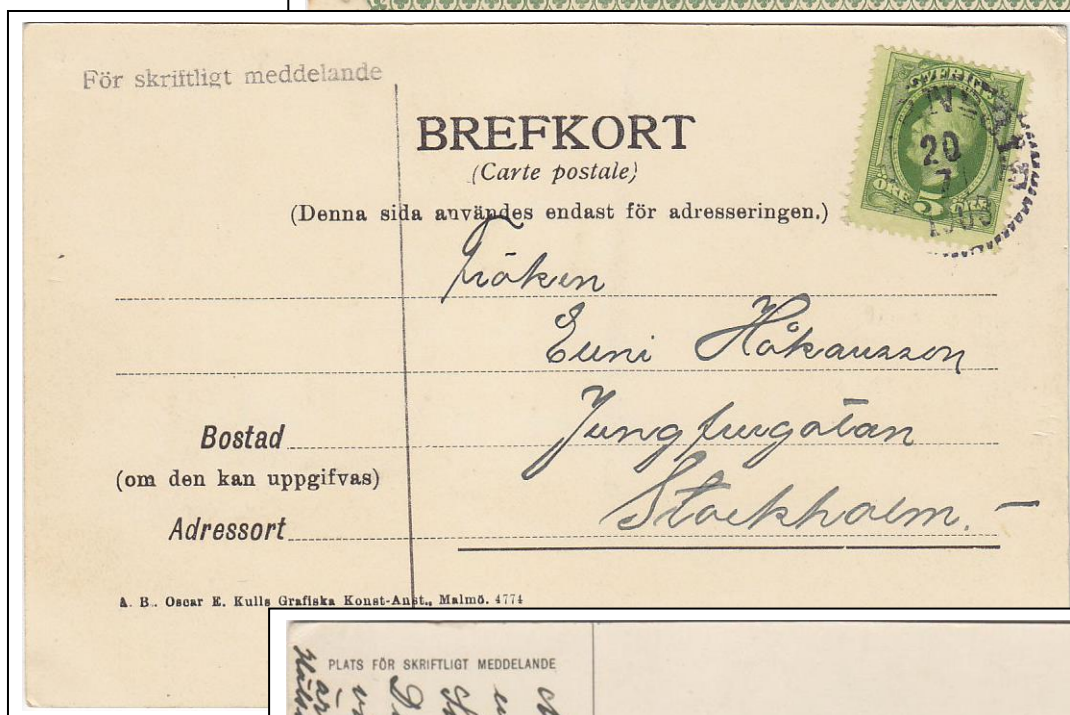 För skriftligt meddelande
BREFKORT
(Carte postale)
(Denna sida användes endast för adresseringen.)
SVERIGE
20
7
ÖRE 5 ÖRE
Fröken
Håkansson
Jungfrugatan
Bostad
(om den kan uppgifvas)
Stockholm.
Adressort
A. B. Oscar E. Kulls Grafiska Konst-Anst., Malmö. 4774
PLATS FÖR SKRIFTLIGT MEDDELANDE